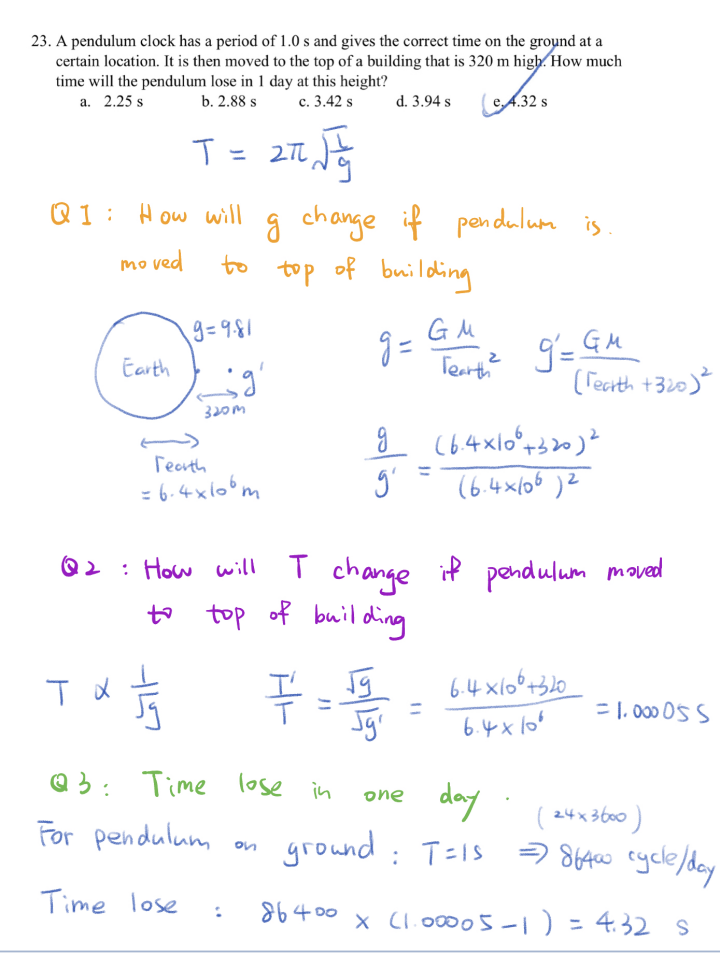 23. A pendulum clock has a period of 1.0 s and gives the correct time on the ground at a
certain location. It is then moved to the top of a building that is 320 m high. How much
time will the pendulum lose in 1 day at this height?
a. 2.25 s b. 2.88 s c. 3.42 s d. 3.94 s e. 4.32 s
T = 2π √(l/g)
Q1 : How will g change if pendulum is.
moved to top of building
g=9.81
Earth
g'
320m
rearth
= 6.4×10⁶ m
g = GM/rearth² g' = GM/(rearth +320)²
g/g' = (6.4×10⁶+320)²/(6.4×10⁶)²
Q2 : How will T change if pendulum moved
to top of building
T ∝ 1/√g T'/T = √g/√g' = 6.4×10⁶+320/6.4×10⁶ = 1.00005 s
Q3 : Time lose in one day .
(24×3600)
For pendulum on ground : T=1s ⇒ 86400 cycle/day
Time lose : 86400 × (1.00005-1) = 4.32 s